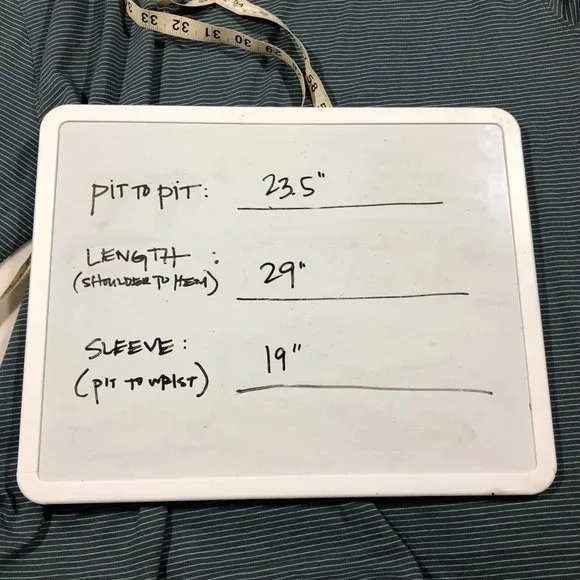 33 32 31 30 29 28
PIT TO PIT: 23.5"
LENGTH : 29"
(SHOULDER TO HEM)
SLEEVE : 19"
(PIT TO WRIST)